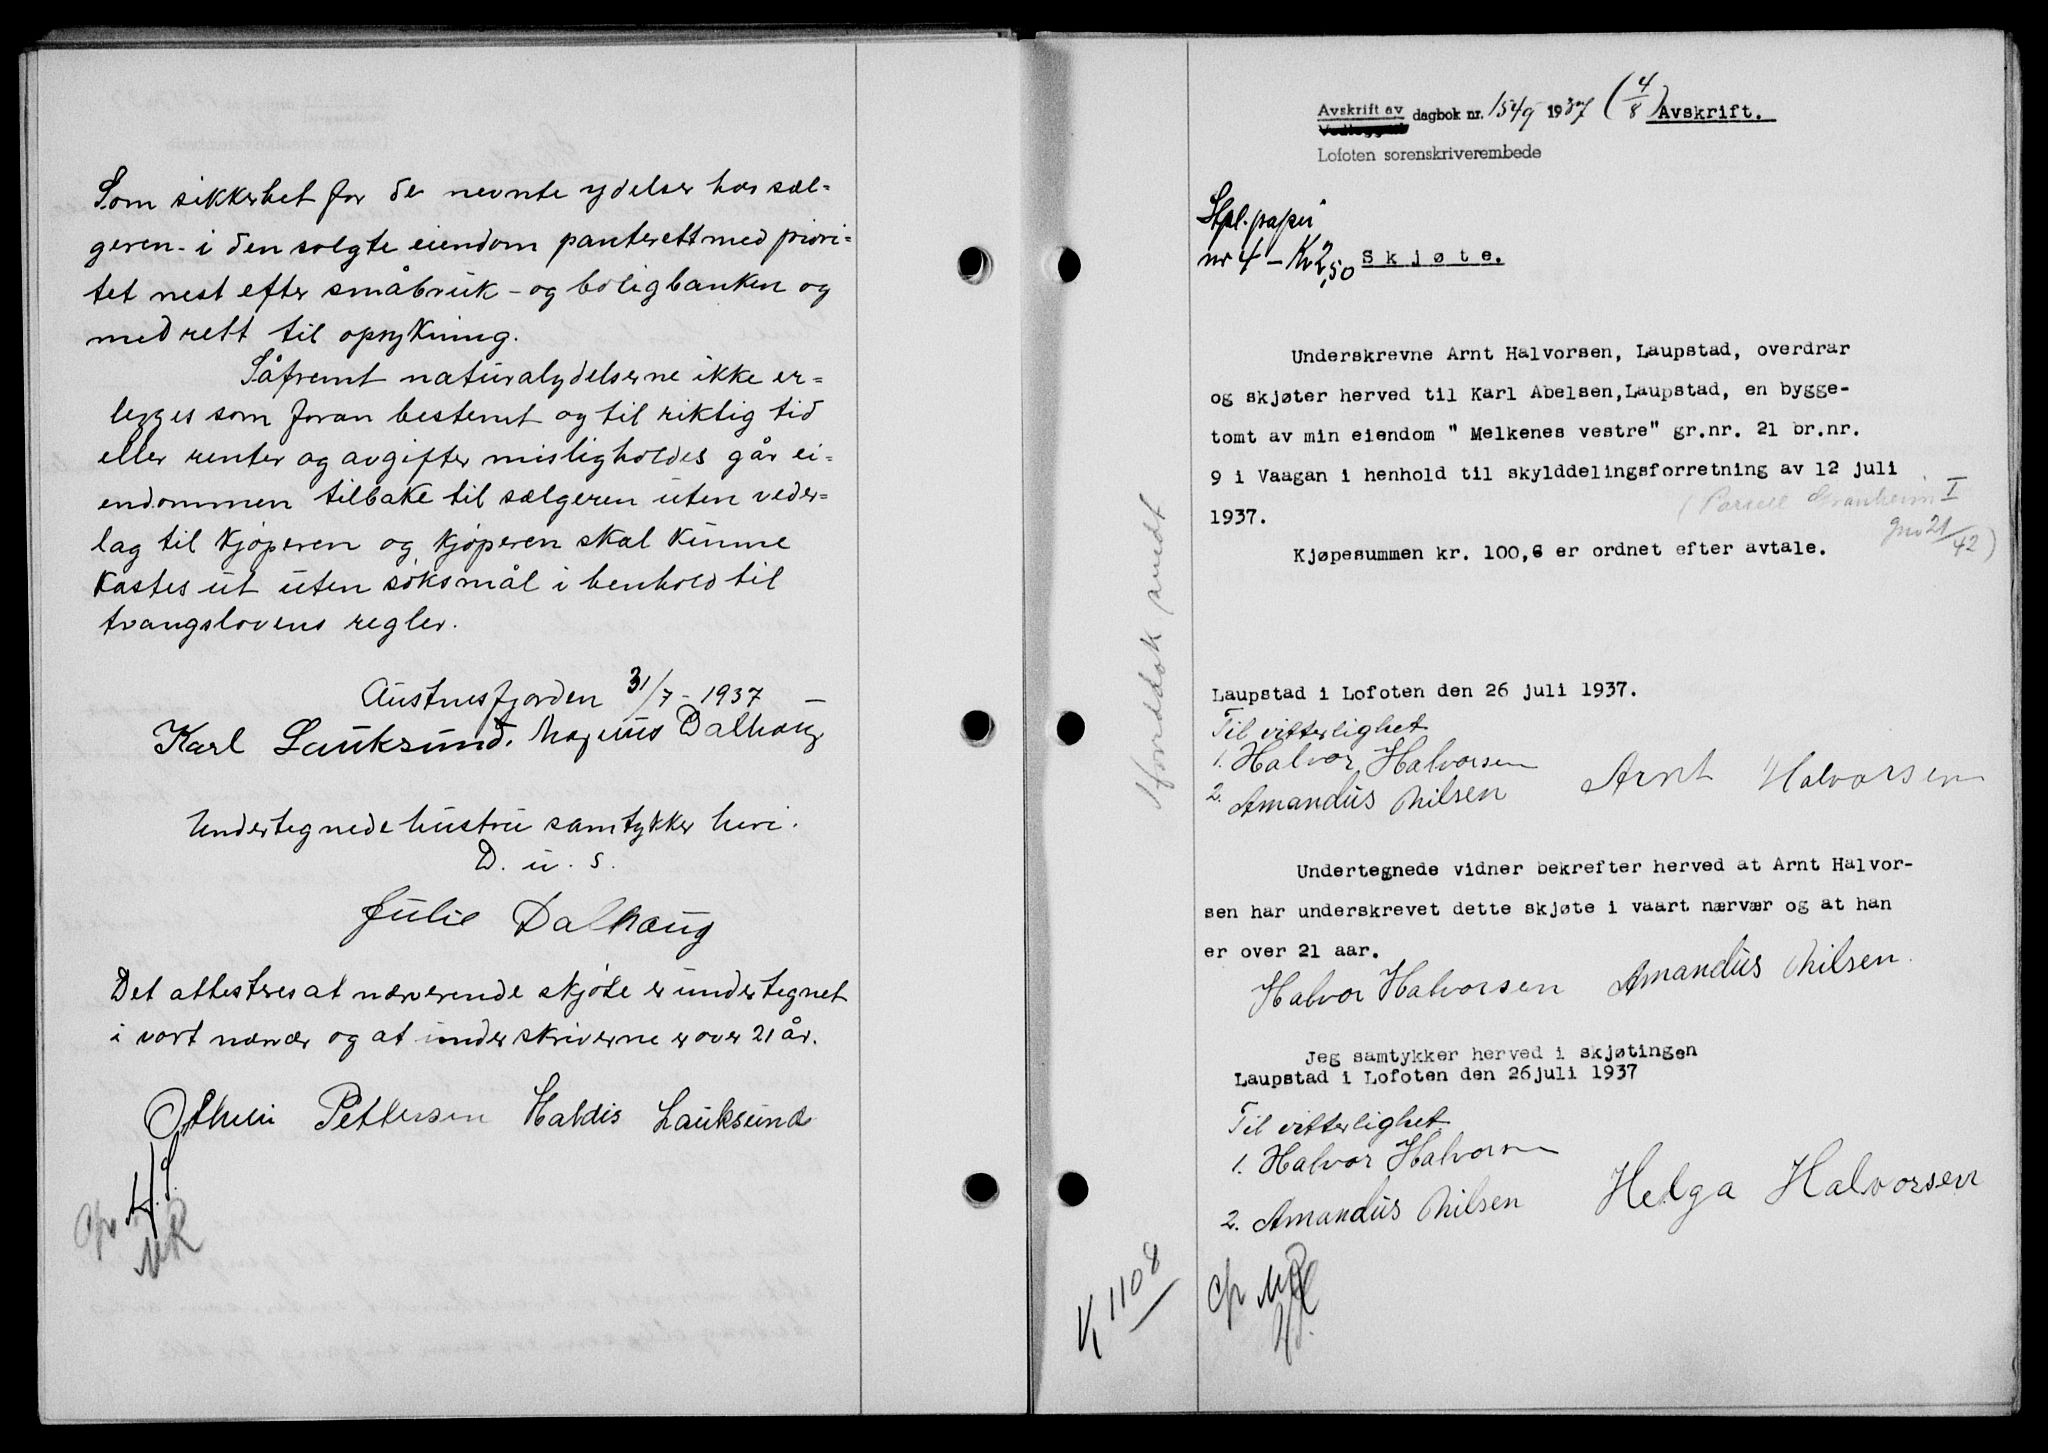 Som sikkerhet for de nevnte ydelser har sæl-
geren i den solgte eiendom panterett med priori-
tet nest efter småbruk- og boligbanken og
med rett til oprykning.
Såfremt naturalydelserne ikke er-
legges som foran bestemt og til riktig tid
eller renter og avgifter misligholdes går ei-
endommen tilbake til sælgeren uten veder-
lag til kjøperen og kjøperen skal kunne
kastes ut uten søksmål i henhold til
tvangslovens regler.
Austnesfjorden 31/7 - 1937
Karl Lauksund. Magnus Dalhaug
Undertegnede hustru samtykker heri.
D. u. s.
Julie Dalhaug
Det attesteres at nærverende skjøte er undertegnet
i vort nærvær og at underskriverne er over 21 år.
Pettersen Haldis Lauksund
Avskrift av dagbok nr. 1549 1937 (4/8) Avskrift.
Lofoten sorenskriverembede
Stpl. papir
nr 4 - Kr 2,50 Skjøte.
Underskrevne Arnt Halvorsen, Laupstad, overdrar
og skjøter herved til Karl Abelsen,Laupstad, en bygge-
tomt av min eiendom " Melkenes vestre" gr.nr. 21 br.nr.
9 i Vaagan i henhold til skylddelingsforretning av 12 juli
1937. (Parsell Granheim I
gnr 21/42)
Kjøpesummen kr. 100,6 er ordnet efter avtale.
Laupstad i Lofoten den 26 juli 1937.
Til vitterlighet
1. Halvor Halvorsen
2. Amandus Nilsen Arnt Halvorsen
Undertegnede vidner bekrefter herved at Arnt Halvor-
sen har underskrevet dette skjøte i vaart nærvær og at han
er over 21 aar.
Halvor Halvorsen Amandus Nilsen.
Jeg samtykker herved i skjøtingen
Laupstad i Lofoten den 26juli 1937
Til vitterlighet
1. Halvor Halvorsen
2. Amandus Nilsen Helga Halvorsen
K 1108